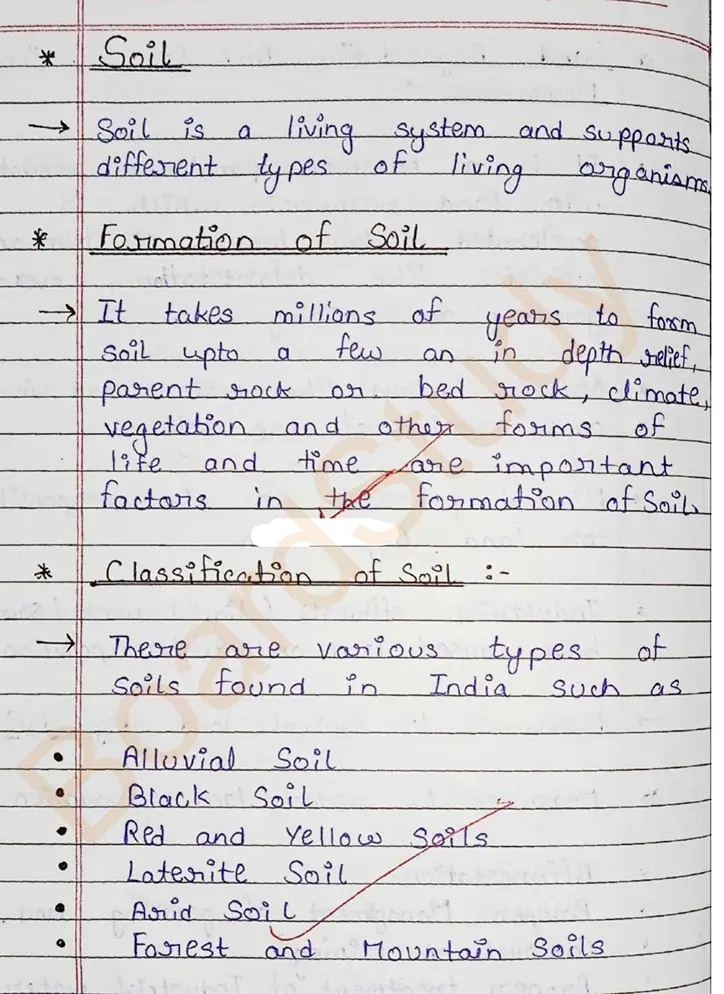 * Soil
→ Soil is a living system and supports
different types of living organisms.
* Formation of Soil
→ It takes millions of years to form
soil upto a few an in depth relief,
parent rock or bed rock, climate,
vegetation and other forms of
life and time are important
factors in the formation of Soil.
* Classification of Soil :-
→ There are various types of
soils found in India such as
• Alluvial Soil
• Black Soil
• Red and Yellow Soils
• Laterite Soil
• Arid Soil
• Forest and Mountain Soils
BoardStudy